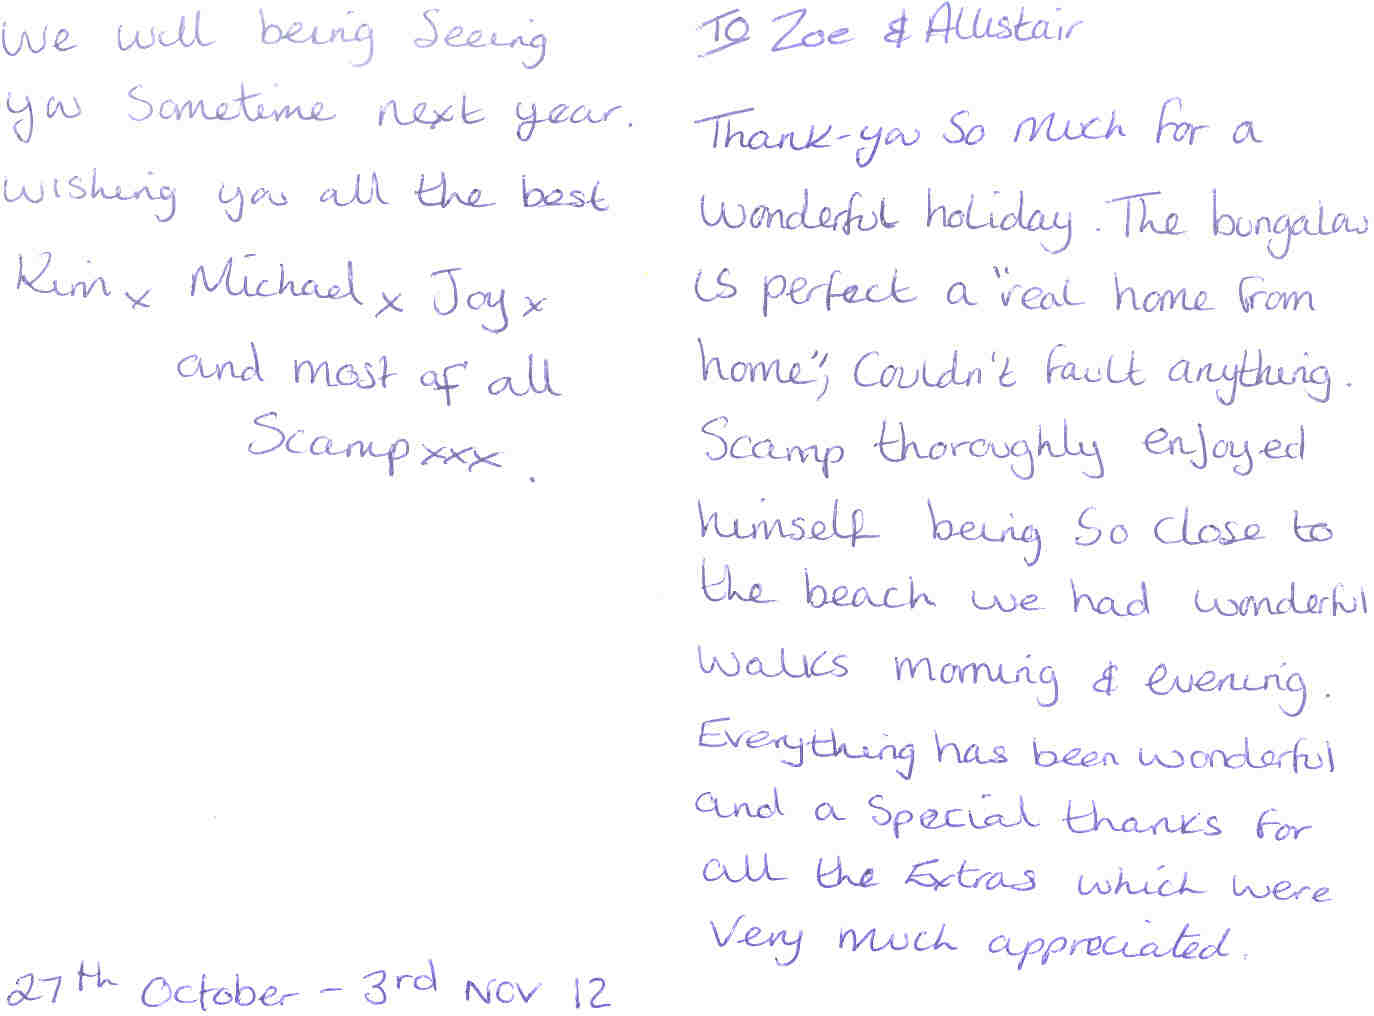 To Zoe & Allistair
Thank-you So much for a
wonderful holiday. The bungalow
is perfect a "real home from
home", Couldn't fault anything.
Scamp thoroughly enjoyed
himself being So close to
the beach we had wonderful
walks morning & evening.
Everything has been wonderful
and a Special thanks for
all the Extras which were
Very much appreciated.
We will being Seeing
you Sometime next year.
wishing you all the best
Kim x Michael x Joy x
and most of all
Scamp xxx.
27th October - 3rd Nov 12